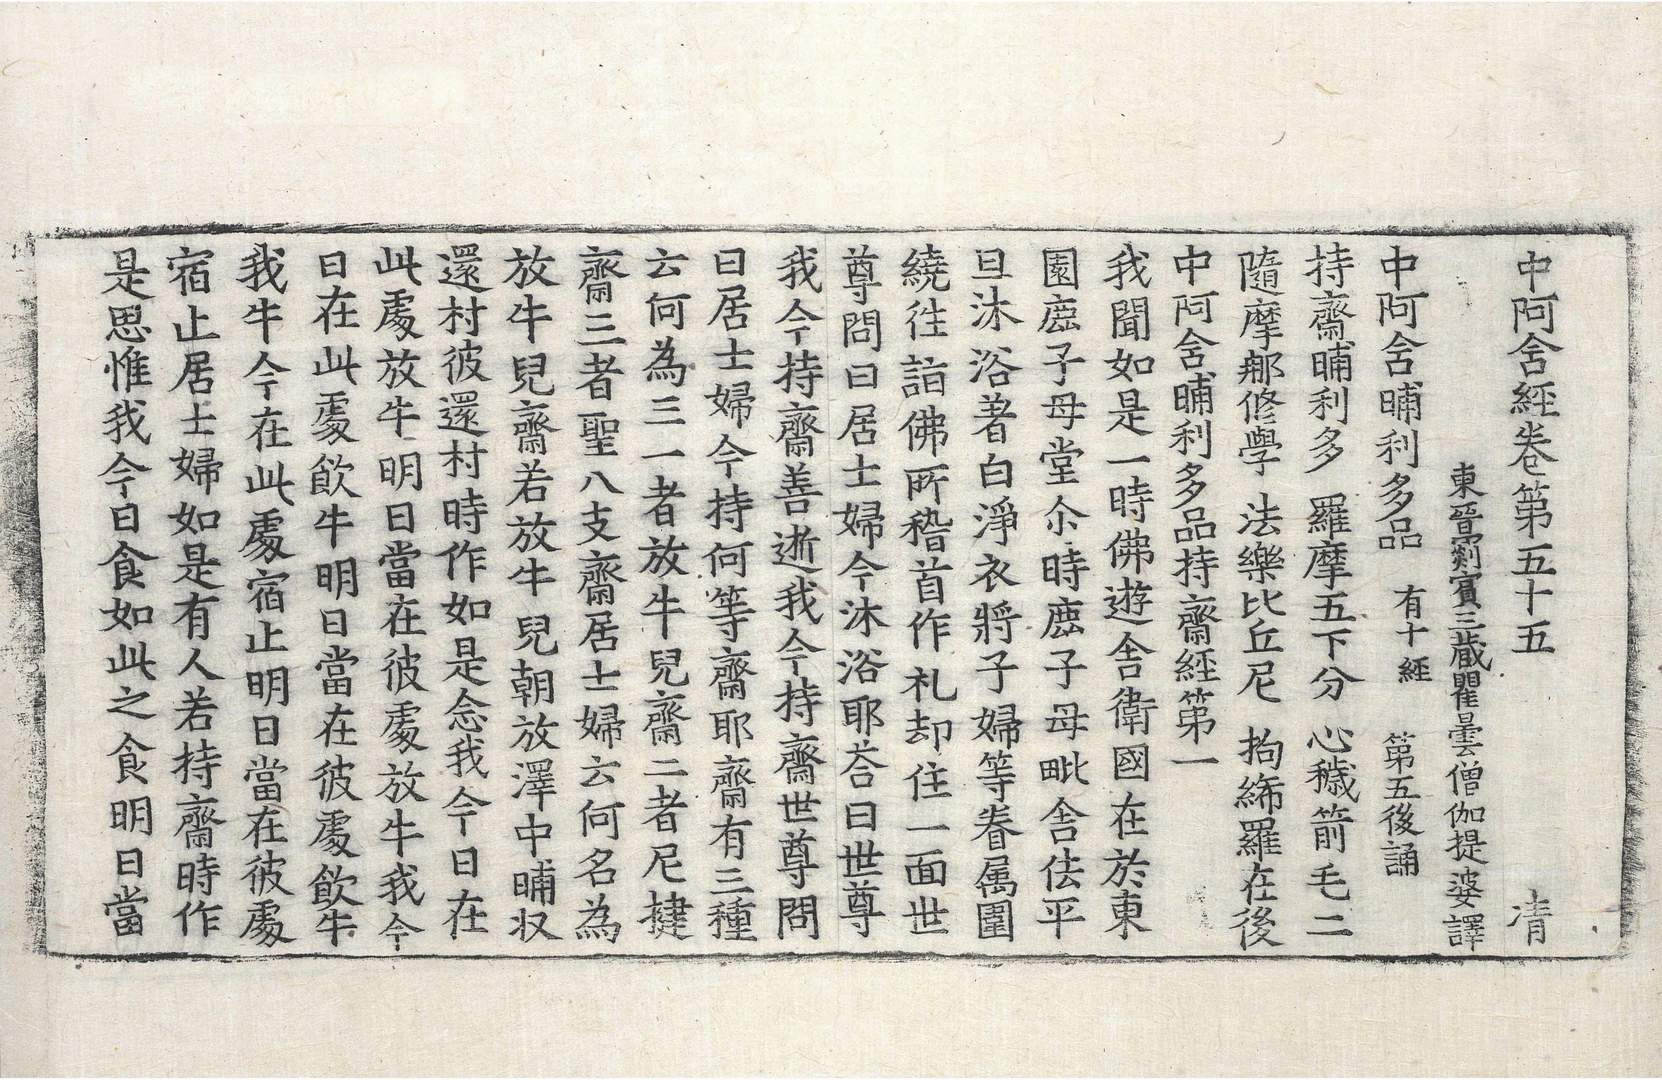 中阿含經卷第五十五 清
東晉罽賓三藏瞿曇僧伽提婆譯
中阿含晡利多品 有十經 第五後誦
持齋晡利多 羅摩五下分 心穢箭毛二
隨摩那修學 法樂比丘尼 拘絺羅在後
中阿含晡利多品持齋經第一
我聞如是一時佛遊舍衛國在於東
園鹿子母堂尒時鹿子母毗舍佉平
旦沐浴著白淨衣將子婦等眷属圍
繞往詣佛所稽首作礼却住一面世
尊問曰居士婦今沐浴耶荅曰世尊
我今持齋善逝我今持齋世尊問
曰居士婦今持何等齋耶齋有三種
云何為三一者放牛兒齋二者尼揵
齋三者聖八支齋居士婦云何名為
放牛兒齋若放牛兒朝放澤中晡収
還村彼還村時作如是念我今日在
此處放牛明日當在彼處放牛我今
日在此處飲牛明日當在彼處飲牛
我牛今在此處宿止明日當在彼處
宿止居士婦如是有人若持齋時作
是思惟我今日食如此之食明日當